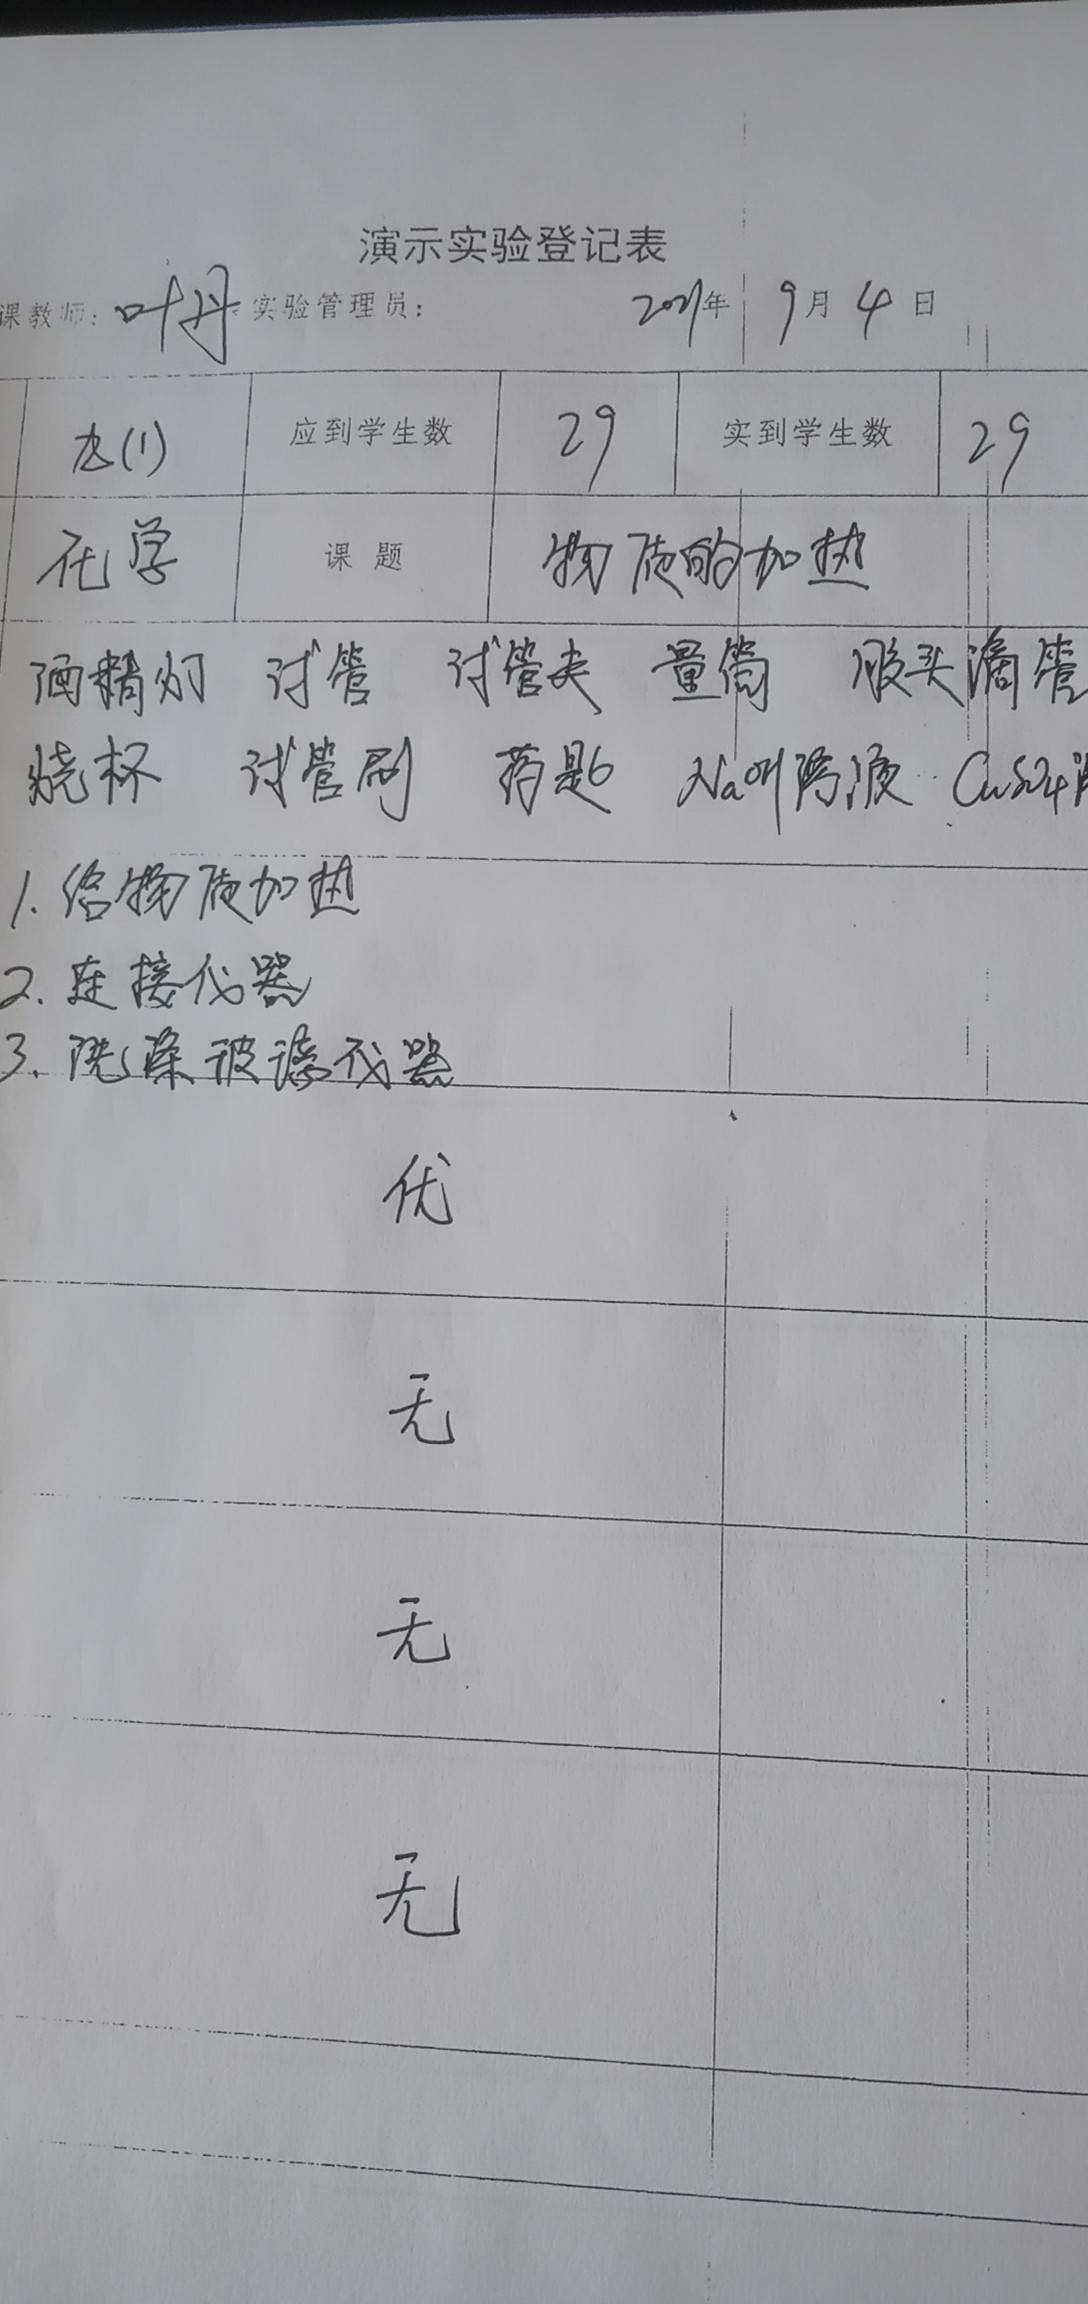 演示实验登记表
课教师：叶丹 实验管理员： 2021年 9月 4日
九(1) 应到学生数 29 实到学生数 29
化学 课题 物质的加热
酒精灯 试管 试管夹 量筒 胶头滴管
烧杯 试管刷 药匙 NaOH溶液 CuSO4溶
1. 给物质加热
2. 连接仪器
3. 洗涤玻璃仪器
优
无
无
无